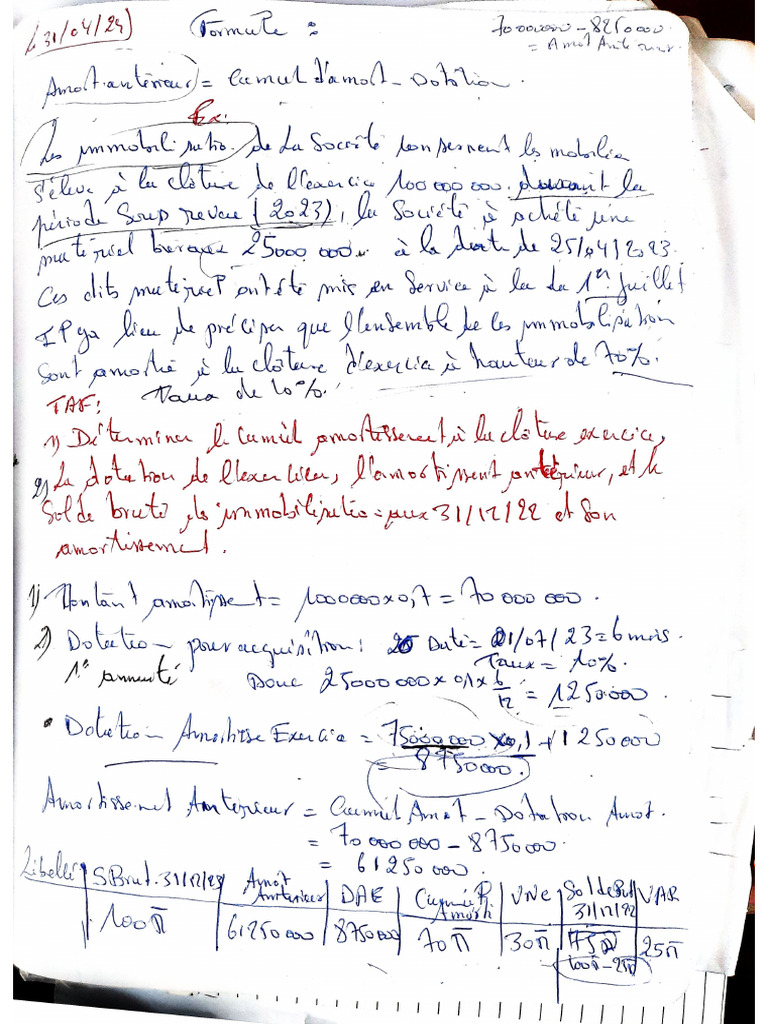 (31/04/24) Formule : 70000000 - 8250000
= Amot Antérieur.
Amort. antérieur = Cumul d'amort - Dotation.
Ex:
Les immobilisatio. de la Société concernent les mobilie
s'élève à la clôture de l'exercice 100 000 000. durant la
période Sous revue (2023), la Société à acheté une
matériel bureaux 25000 000 à la date de 25/04/2023.
Ces dits matériel ont été mis en Service à la da 1er Juillet
Il ya lieu de préciser que l'ensemble de ces immobilisation
sont amortie à la clôture d'exercice à hauteur de 70%.
Taux de 10%.
TAF:
1) Déterminer le Cumul amortissement à la clôture exercice,
2) La dotation de l'exercice, l'amortissent antérieur, et le
Solde brute des immobilisatio aux 31/12/22 et Son
amortissement.
1) Montant amortissent = 1000000 x 0,7 = 70 000 000.
2) Dotation pour acquisition : Date = 01/07/23 = 6 mois.
1er annuité Taux = 10%.
Donc 25000000 x 0,1 x 6/12 = 1250000.
• Dotation Amortisse Exercice = 75000000 x 0,1 + 1250000
= 8750000.
Amortissement Antérieur = Cumul Amot - Dotation Amot.
= 70 000 000 - 8750000
= 61250000.
Libellé | S Brut. 31/12/23 | Amot Antérieur | DAE | Cumul Amorti | VNC | Solde But 31/12/22 | VAR
100 M | 61250000 | 8750000 | 70 M | 30 M | 75 M | 25 M
100 M - 25 M